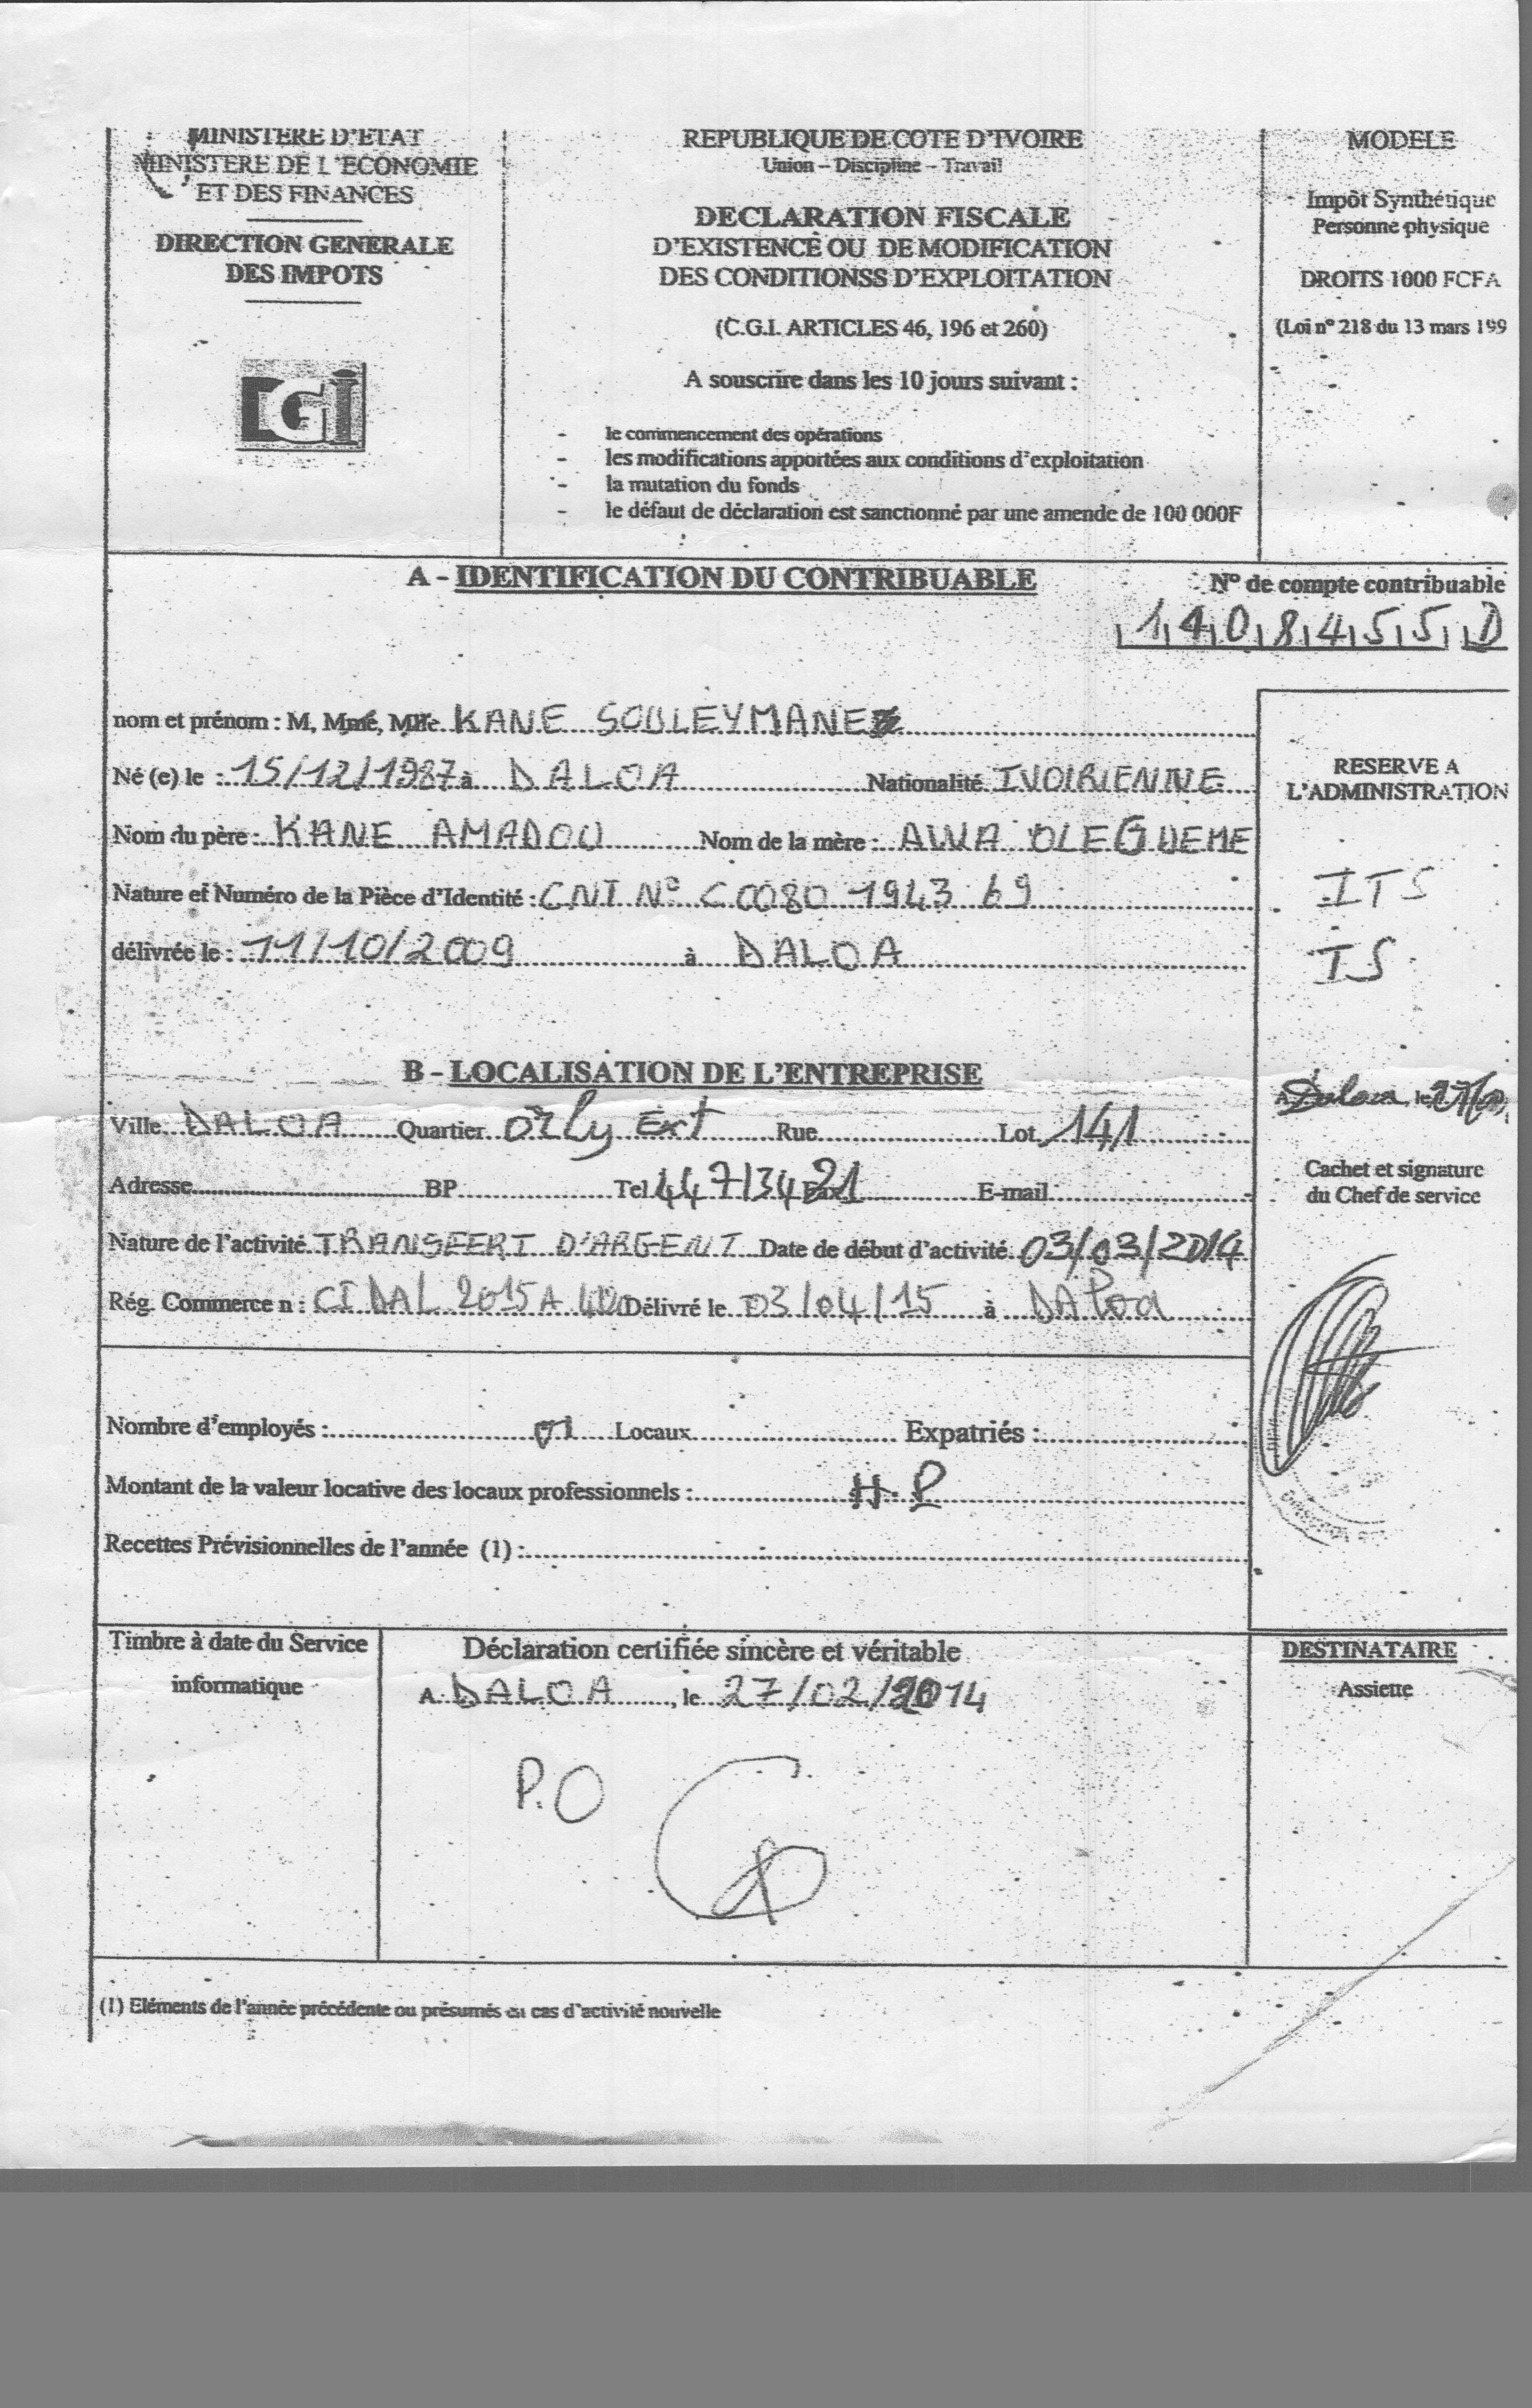 MINISTERE D'ETAT
MINISTERE DE L'ECONOMIE
ET DES FINANCES
DIRECTION GENERALE
DES IMPOTS
DGI
REPUBLIQUE DE COTE D'IVOIRE
Union – Discipline – Travail
DECLARATION FISCALE
D'EXISTENCE OU DE MODIFICATION
DES CONDITIONSS D'EXPLOITATION
(C.G.I. ARTICLES 46, 196 et 260)
A souscrire dans les 10 jours suivant :
- le commencement des opérations
- les modifications apportées aux conditions d'exploitation
- la mutation du fonds
- le défaut de déclaration est sanctionné par une amende de 100 000F
MODELE
Impôt Synthétique
Personne physique
DROITS 1000 FCFA
(Loi n° 218 du 13 mars 199
A - IDENTIFICATION DU CONTRIBUABLE
N° de compte contribuable
1408455 D
nom et prénom : M, Mme, Mlle KANE SOULEYMANE
Né (e) le : 15/12/1987 à DALOA Nationalité IVOIRIENNE
Nom du père : KANE AMADOU Nom de la mère : AWA OLEGUEME
Nature et Numéro de la Pièce d'Identité : CNI N° C 0080 1943 69
délivrée le : 11/10/2009 à DALOA
RESERVE A
L'ADMINISTRATION
ITS
TS
B - LOCALISATION DE L'ENTREPRISE
Ville DALOA Quartier Orly Ext Rue Lot 141
Adresse BP Tel 44713421 Fax E-mail
Nature de l'activité TRANSFERT D'ARGENT Date de début d'activité 03/03/2014
Rég. Commerce n : CI DAL 2015 A Délivré le 03/04/15 à Daloa
A Daloa, le
Cachet et signature
du Chef de service
Nombre d'employés : 01 Locaux Expatriés :
Montant de la valeur locative des locaux professionnels : H.P
Recettes Prévisionnelles de l'année (1) :
Timbre à date du Service
informatique
Déclaration certifiée sincère et véritable
A DALOA, le 27/02/2014
P.O
DESTINATAIRE
Assiette
(1) Eléments de l'année précédente ou présumés en cas d'activité nouvelle